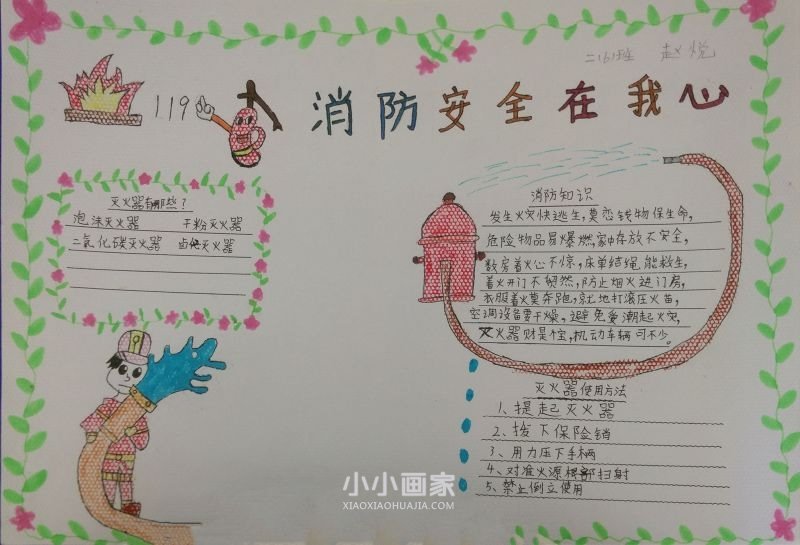 二(6)班 赵悦
119
消防安全在我心
灭火器有那些?
泡沫灭火器 干粉灭火器
二氧化碳灭火器 灭火器
消防知识
发生火灾快逃生,莫恋钱物保生命,
危险物品易爆燃,家中存放不安全,
着火心不惊,床单结绳能救生,
着火开门不 然,防止烟火进门房,
衣服着火莫奔跑,就地打滚压火苗,
空调设备要干燥,避免受潮起火灾,
灭火器财是个宝,机动车辆 不少。
灭火器使用方法
1、提起灭火器
2、拔下保险销
3、用力压下手柄
4、对准火源根部扫射
5、禁止倒立使用
小小画家
XIAOXIAOHUAJIA.COM